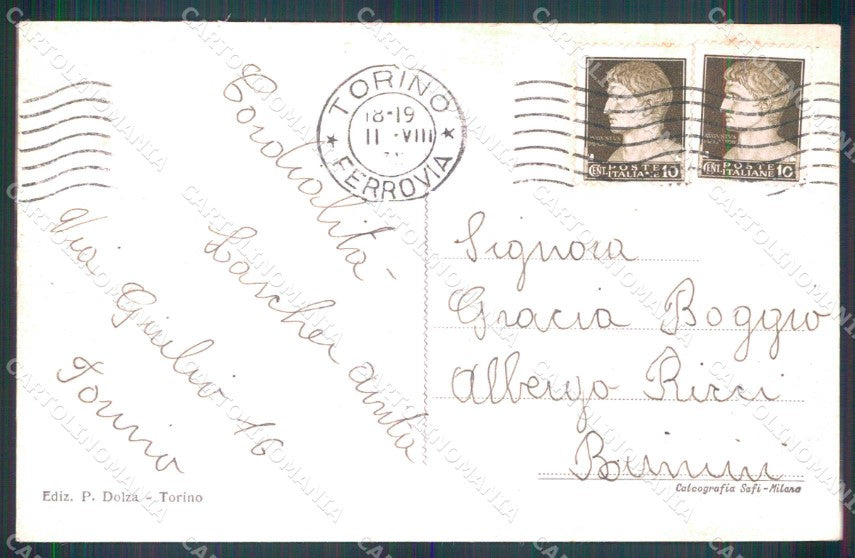 Cordialità -
Lascher Anita
Via Giulio 16
Torino
TORINO
18-19
11 · VIII
FERROVIA
POSTE
CENT. ITALIANE 10
POSTE
CENT. ITALIANE 10
Signora
Gracia Boggio
Albergo Ricci
Rimini
Calcografia Safi-Milano
Ediz. P. Dolza - Torino
CARTOLINOMANIA